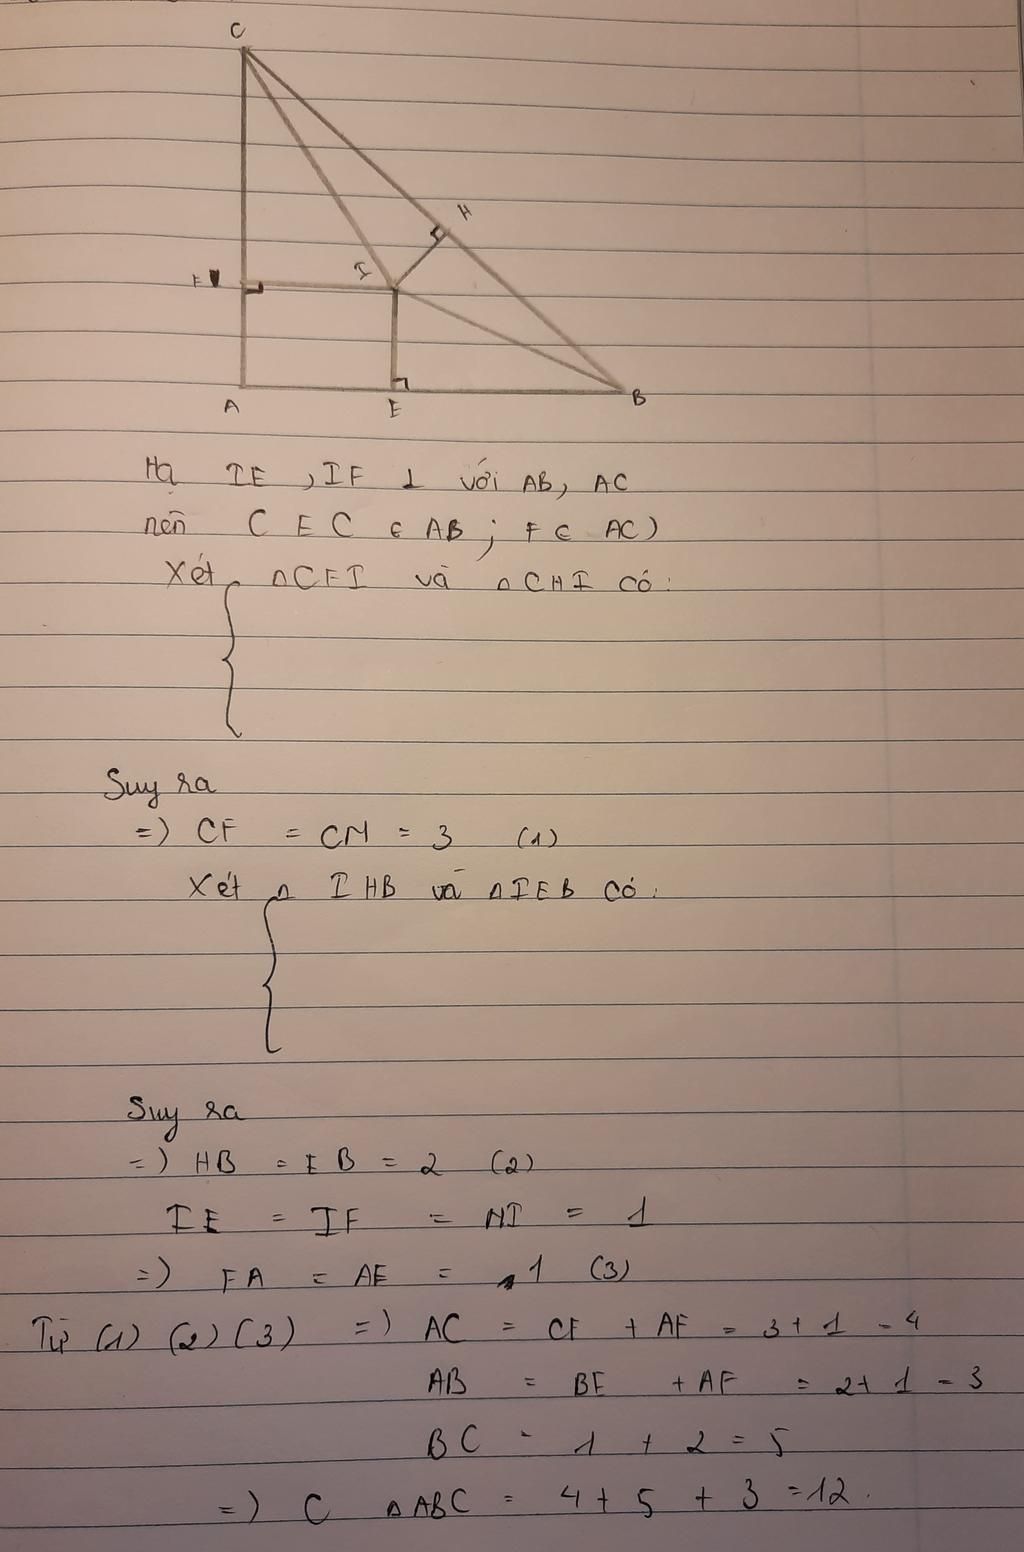 C
H
I
F
A
E
B
Hạ IE , IF ⊥ với AB, AC
nên C E C ∈ AB ; F ∈ AC)
Xét △CFI và △CHI có :
Suy ra
=) CF = CM = 3 (1)
Xét △ IHB và △IEB có :
Suy ra
=) HB = EB = 2 (2)
IE = IF = HI = 1
=) FA = AE = 1 (3)
Từ (1) (2) (3) =) AC = CF + AF = 3 + 1 = 4
AB = BE + AF = 2 + 1 = 3
BC = 1 + 2 = 5
=) C △ABC = 4 + 5 + 3 = 12 .